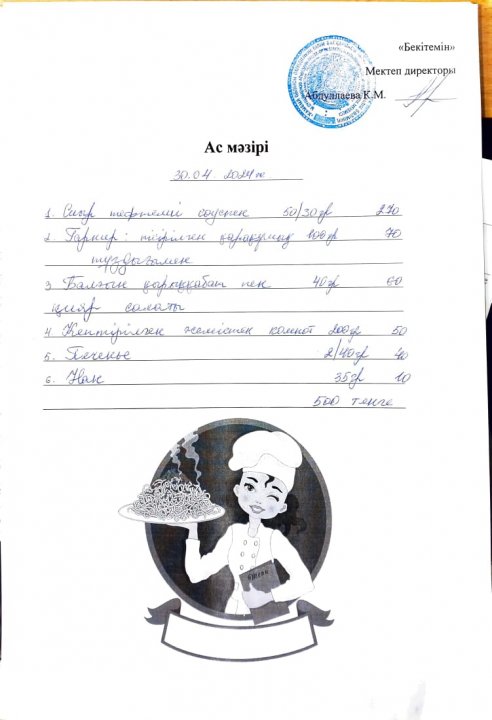 «Бекітемін»
Мектеп директоры
Абдуллаева К.М.
Ас мәзірі
30.04. 2024ж
1. Сиыр тефтелиі соуспен 50/30гр 270
2. Гарнир: пісірілген қарақұмық 100гр 70
тұздығымен
3. Балғын қырыққабат пен 40гр 60
қияр салаты
4. Кептірілген жемістен компот 200гр 50
5. Печенье 2/40гр 40
6. Нан 35гр 10
500 теңге